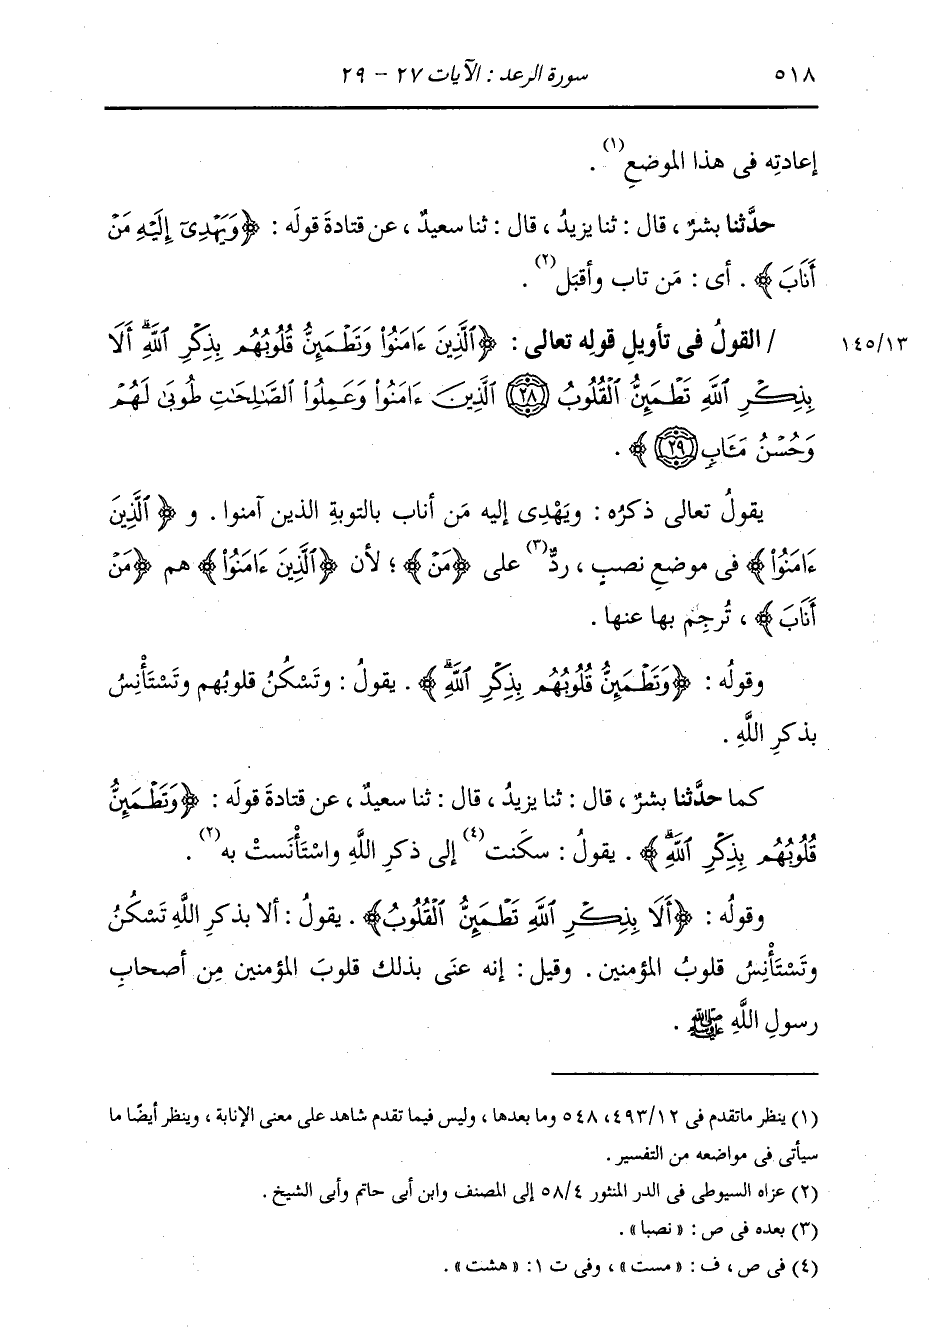 ٥١٨ سورة الرعد : الآيات ٢٧ - ٢٩
إعادتِه فى هذا الموضعِ(١) .
حدَّثنا بشرٌ ، قال : ثنا يزيدُ ، قال : ثنا سعيدٌ ، عن قتادةَ قولَه : ﴿وَيَهْدِىٓ إِلَيْهِ مَنْ
أَنَابَ﴾ . أى : مَن تاب وأقبَل(٢) .
١٤٥/١٣ / القولُ فى تأويلِ قولِه تعالى : ﴿ٱلَّذِينَ ءَامَنُوا۟ وَتَطْمَئِنُّ قُلُوبُهُم بِذِكْرِ ٱللَّهِ ۗ أَلَا
بِذِكْرِ ٱللَّهِ تَطْمَئِنُّ ٱلْقُلُوبُ ﴿٢٨﴾ ٱلَّذِينَ ءَامَنُوا۟ وَعَمِلُوا۟ ٱلصَّـٰلِحَـٰتِ طُوبَىٰ لَهُمْ
وَحُسْنُ مَـَٔابٍ ﴿٢٩﴾﴾ .
يقولُ تعالى ذكرُه : ويَهْدِى إليه مَن أناب بالتوبةِ الذين آمنوا . و ﴿ٱلَّذِينَ
ءَامَنُوا۟﴾ فى موضعِ نصبٍ ، ردٌّ(٣) على ﴿مَنْ﴾ ؛ لأن ﴿ٱلَّذِينَ ءَامَنُوا۟﴾ هم ﴿مَنْ
أَنَابَ﴾ ، تُرجِم بها عنها .
وقولُه : ﴿وَتَطْمَئِنُّ قُلُوبُهُم بِذِكْرِ ٱللَّهِ ۗ﴾ . يقولُ : وتَسْكُنُ قلوبُهم وتَسْتَأْنِسُ
بذكرِ اللَّهِ .
كما حدَّثنا بشرٌ ، قال : ثنا يزيدُ ، قال : ثنا سعيدٌ ، عن قتادةَ قولَه : ﴿وَتَطْمَئِنُّ
قُلُوبُهُم بِذِكْرِ ٱللَّهِ ۗ﴾ . يقولُ : سكَنت(٤) إلى ذكرِ اللَّهِ واسْتَأْنَستْ به(٢) .
وقولُه : ﴿أَلَا بِذِكْرِ ٱللَّهِ تَطْمَئِنُّ ٱلْقُلُوبُ﴾ . يقولُ : ألا بذكرِ اللَّهِ تَسْكُنُ
وتَسْتَأْنِسُ قلوبُ المؤمنين . وقيل : إنه عنَى بذلك قلوبَ المؤمنين مِن أصحابِ
رسولِ اللَّهِ ﷺ .
(١) ينظر ماتقدم فى ٤٩٣/١٢، ٥٤٨ وما بعدها ، وليس فيما تقدم شاهد على معنى الإنابة ، وينظر أيضًا ما
سيأتى فى مواضعه من التفسير .
(٢) عزاه السيوطى فى الدر المنثور ٥٨/٤ إلى المصنف وابن أبى حاتم وأبى الشيخ .
(٣) بعده فى ص : « نصبا » .
(٤) فى ص ، ف : « مست » ، وفى ت ١: « هشت » .